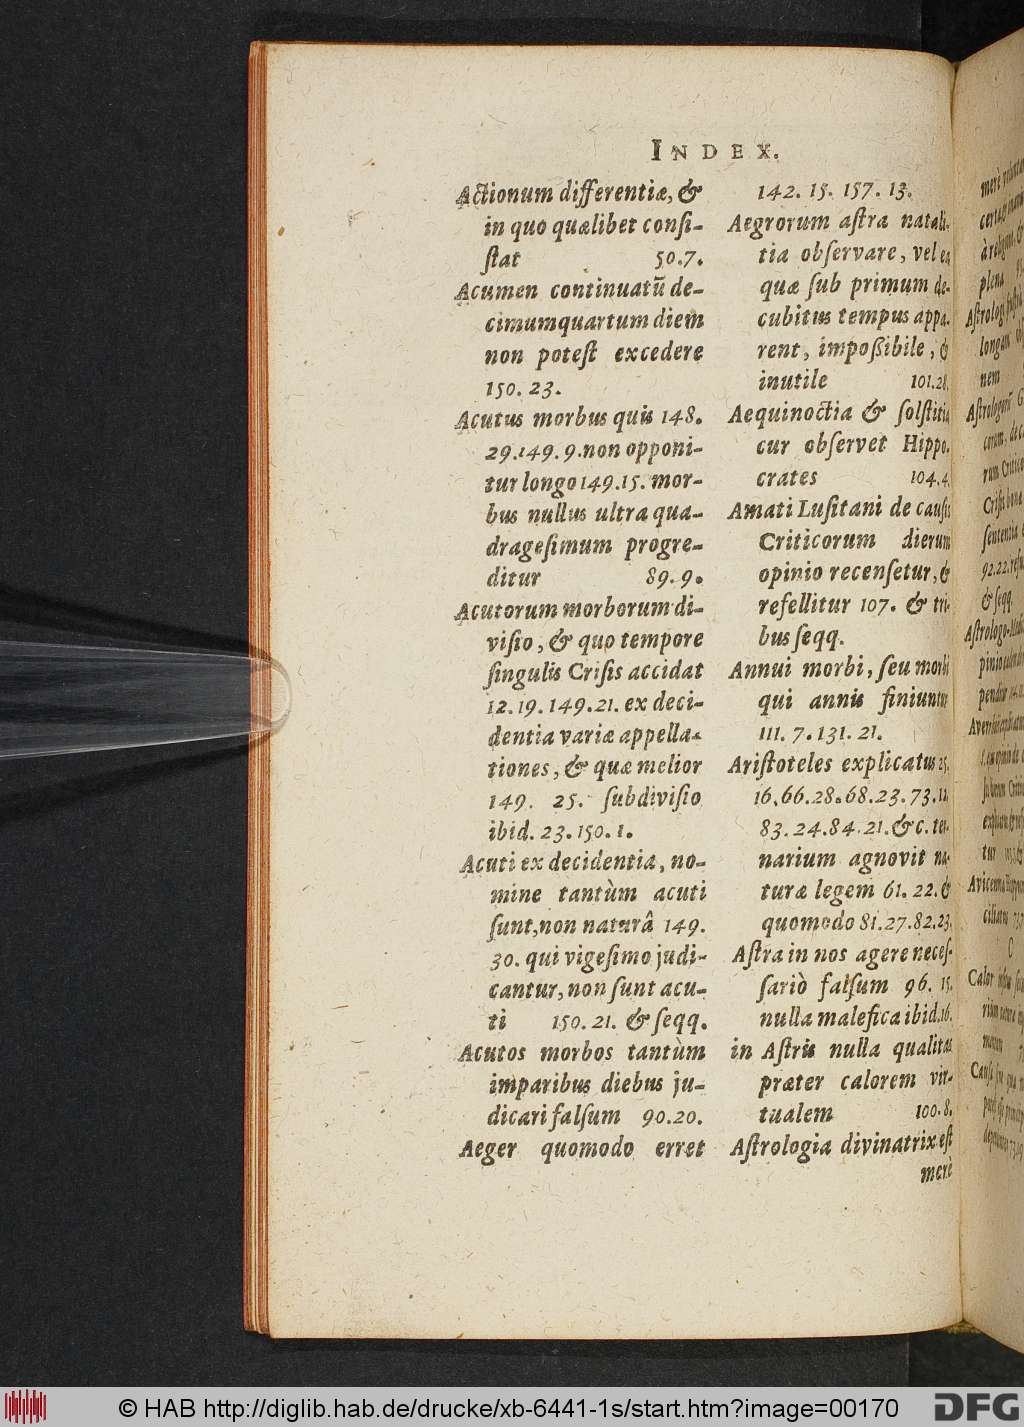 INDEX.
Actionum differentiæ, &
in quo quælibet consi-
stat 50.7.
Acumen continuatū de-
cimumquartum diem
non potest excedere
150. 23.
Acutus morbus quis 148.
29.149.9.non opponi-
tur longo 149.15. mor-
bus nullus ultra qua-
dragesimum progre-
ditur 89.9.
Acutorum morborum di-
visio, & quo tempore
singulis Crisis accidat
12.19.149.21. ex deci-
dentia variæ appella-
tiones, & quæ melior
149. 25. subdivisio
ibid. 23.150.1.
Acuti ex decidentia, no-
mine tantùm acuti
sunt, non naturâ 149.
30. qui vigesimo judi-
cantur, non sunt acu-
ti 150.21. & seqq.
Acutos morbos tantùm
imparibus diebus ju-
dicari falsum 90.20.
Aeger quomodo erret
142. 15. 157. 13.
Aegrorum astra natali-
tia observare, vel ea
quæ sub primum de-
cubitus tempus appa-
rent, impoßibile, &
inutile 101.28.
Aequinoctia & solstitia
cur observet Hippo-
crates 104.4.
Amati Lusitani de causis
Criticorum dierum
opinio recensetur, &
refellitur 107. & tri-
bus seqq.
Annui morbi, seu morbi
qui annis finiuntur
111. 7.131. 21.
Aristoteles explicatus 25.
16.66.28.68.23.73.12.
83.24.84.21.&c. ter-
narium agnovit na-
turæ legem 61.22.&
quomodo 81.27.82.23.
Astra in nos agere neces-
sariò falsum 96. 15.
nulla malefica ibid.16.
in Astris nulla qualitas
præter calorem vir-
tualem 100.8.
Astrologia divinatrix est
merè
plena
longam
nem
& seqq.
C
Calor
© HAB http://diglib.hab.de/drucke/xb-6441-1s/start.htm?image=00170
DFG